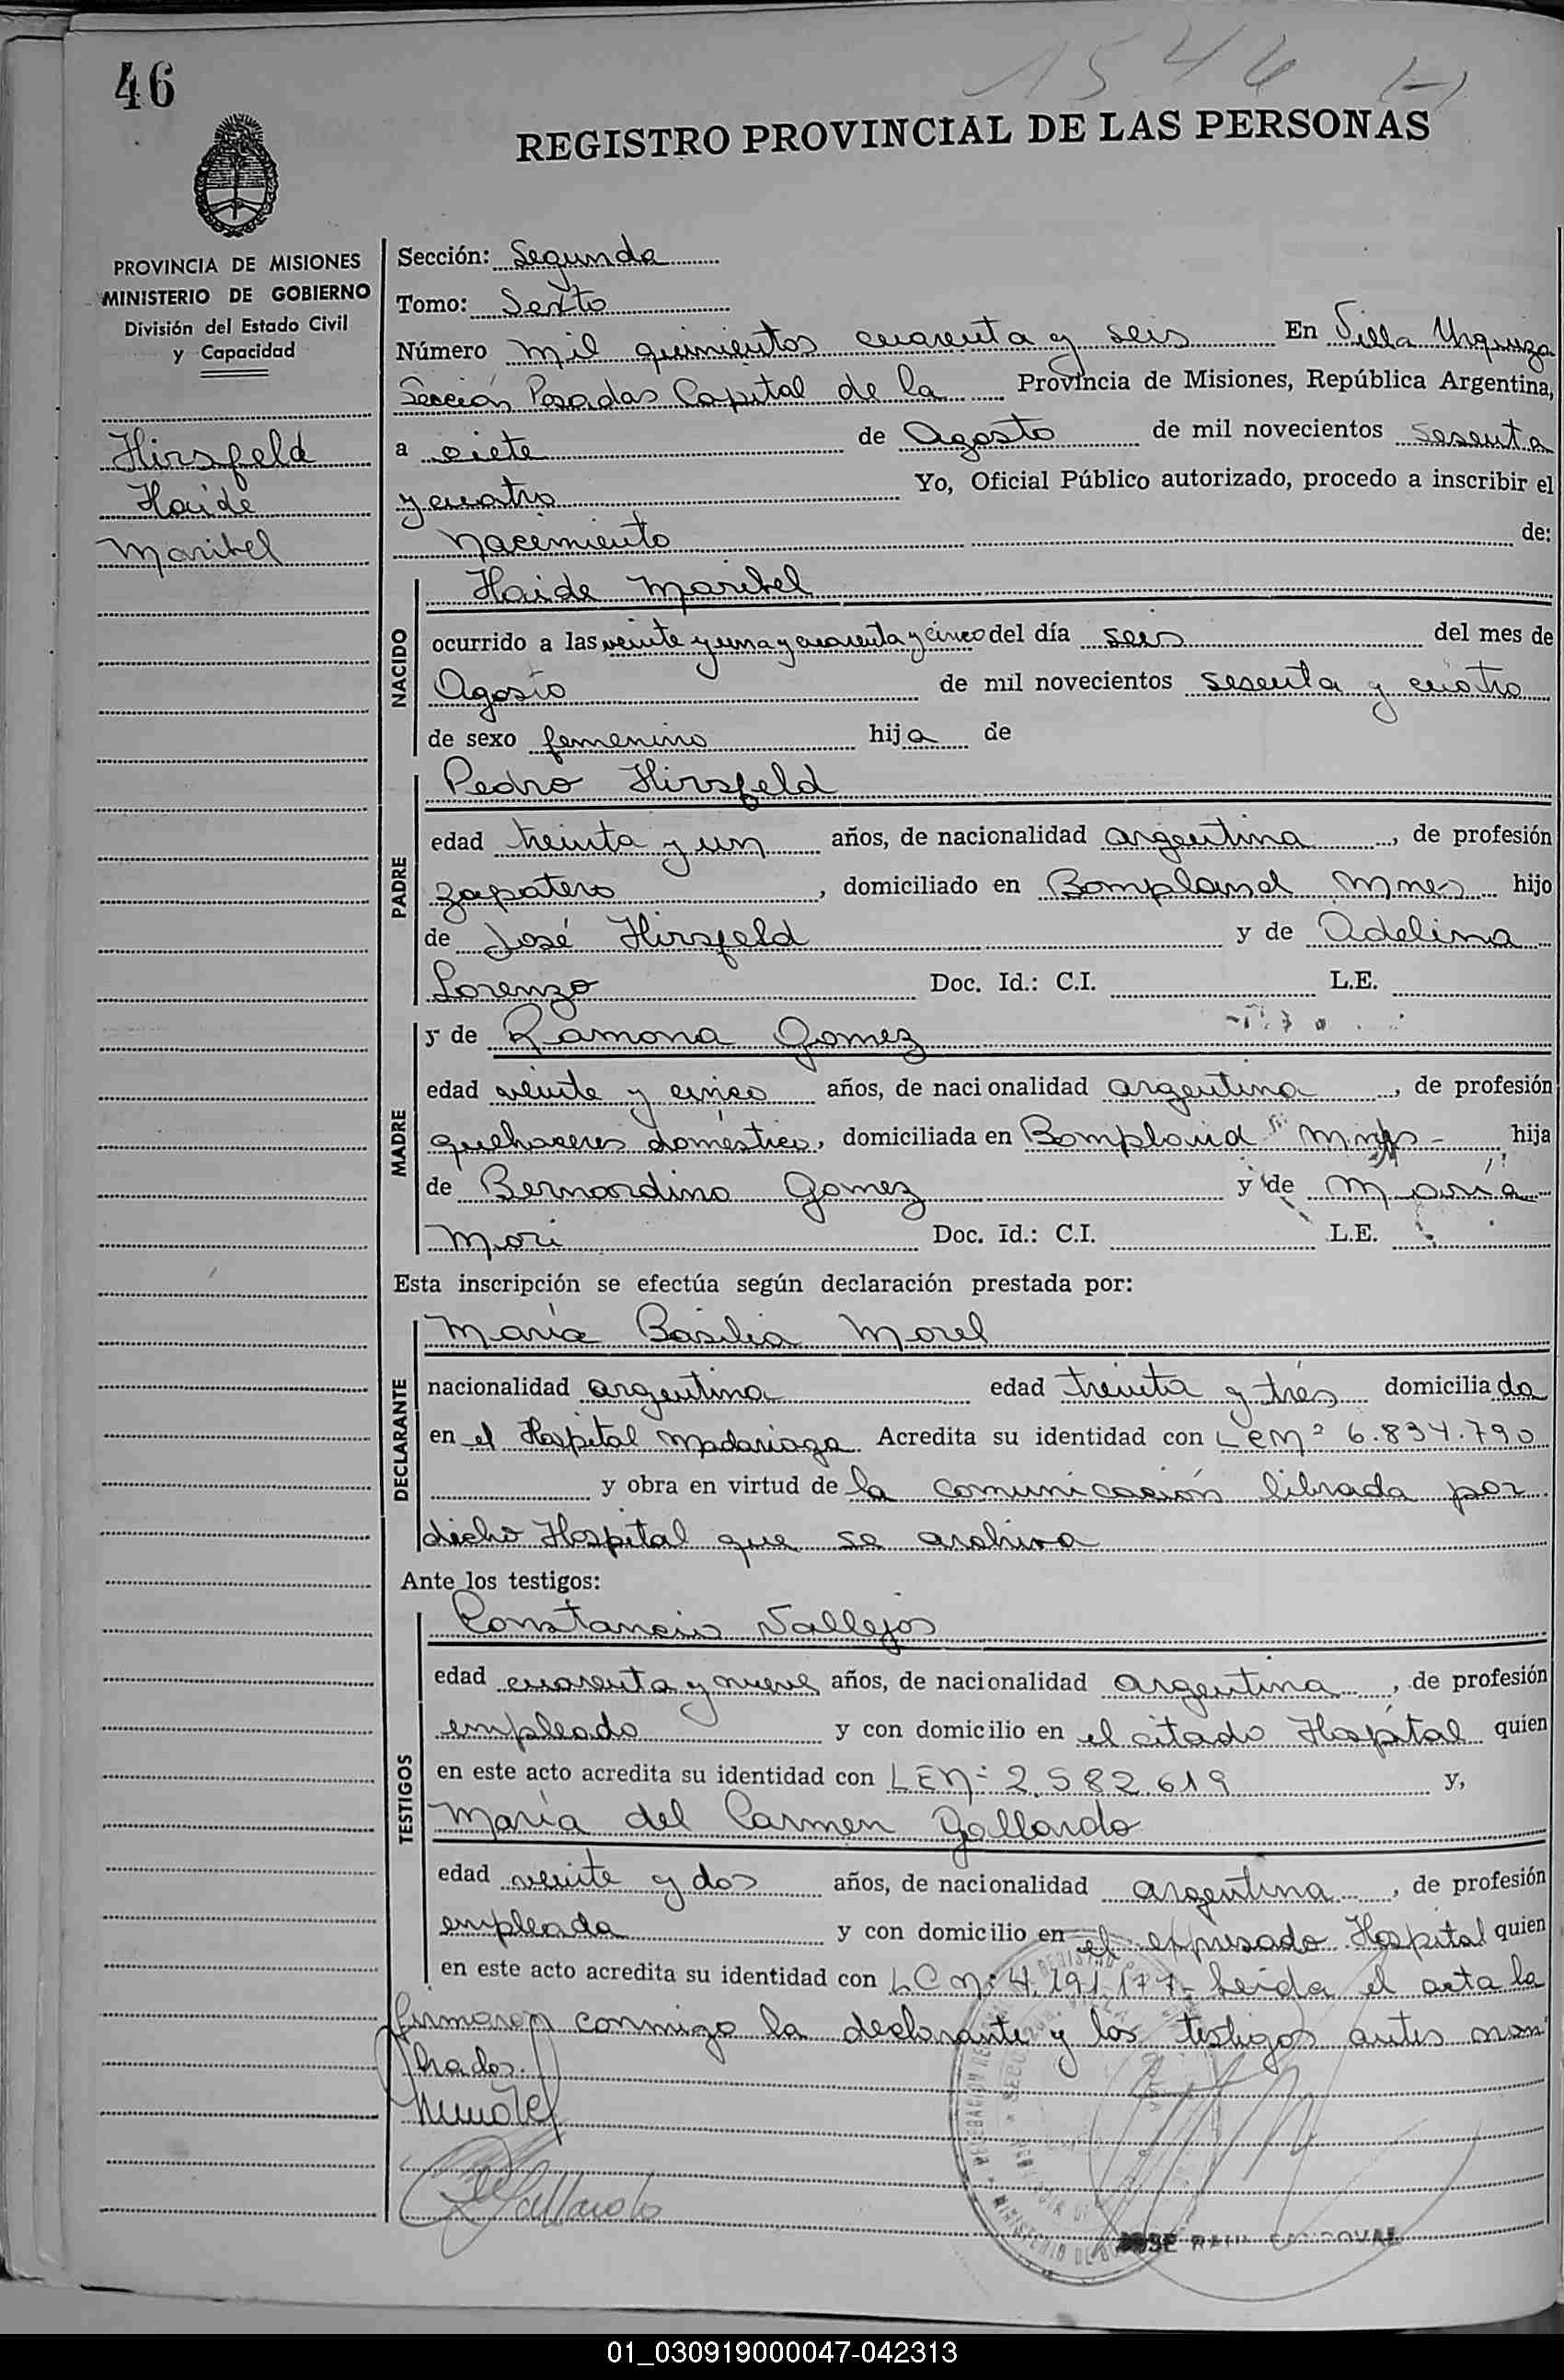 46
1546 (-)
REGISTRO PROVINCIAL DE LAS PERSONAS
PROVINCIA DE MISIONES
MINISTERIO DE GOBIERNO
División del Estado Civil
y Capacidad
Hirsfeld
Haide
Maribel
Sección: Segunda
Tomo: Sexto
Número mil quinientos cuarenta y seis En Villa Urquiza
Sección Posadas Capital de la Provincia de Misiones, República Argentina,
a siete de Agosto de mil novecientos sesenta
y cuatro Yo, Oficial Público autorizado, procedo a inscribir el
nacimiento de:
NACIDO
Haide Maribel
ocurrido a las veinte y una y cuarenta y cinco del día seis del mes de
Agosto de mil novecientos sesenta y cuatro
de sexo femenino hija de
PADRE
Pedro Hirsfeld
edad treinta y un años, de nacionalidad argentina, de profesión
zapatero, domiciliado en Bompland Mnes hijo
de José Hirsfeld y de Adelina
Lorenzo Doc. Id.: C.I. L.E.
MADRE
y de Ramona Gomez
edad veinte y cinco años, de nacionalidad argentina, de profesión
quehaceres domésticos, domiciliada en Bompland Mnes - hija
de Bernardino Gomez y de María
Mori Doc. Id.: C.I. L.E.
Esta inscripción se efectúa según declaración prestada por:
DECLARANTE
María Basilia Morel
nacionalidad argentina edad treinta y trés domiciliada
en el Hospital Madariaga. Acredita su identidad con L e nº 6.834.790
y obra en virtud de la comunicación librada por
dicho Hospital que se archiva
Ante los testigos:
TESTIGOS
Constancio Vallejos
edad cuarenta y nueve años, de nacionalidad argentina, de profesión
empleado y con domicilio en el citado Hospital quien
en este acto acredita su identidad con LEnº 2.582.619 y,
María del Carmen Gallardo
edad veinte y dos años, de nacionalidad argentina, de profesión
empleada y con domicilio en el expresado Hospital quien
en este acto acredita su identidad con LC nº 4.191.177- Leida el acta la
firmaron conmigo la declarante y los testigos antes nom
brados.
Gallardo
JOSE RAUL SANDOVAL
01_030919000047-042313